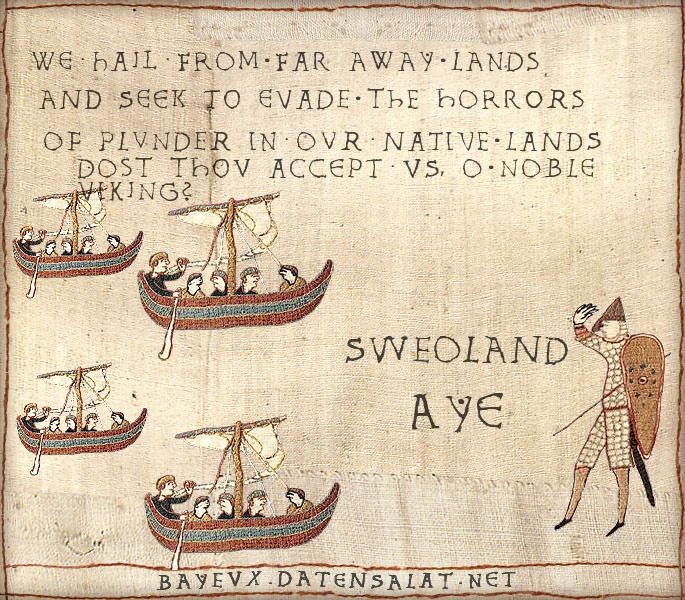 WE·HAIL·FROM·FAR AWAY·LANDS
AND SEEK TO EVADE·THE HORRORS
OF PLVNDER IN·OVR·NATIVE·LANDS
DOST THOV ACCEPT·VS, O·NOBLE
VIKING?
SWEOLAND
AYE
BAYEVX.DATENSALAT.NET